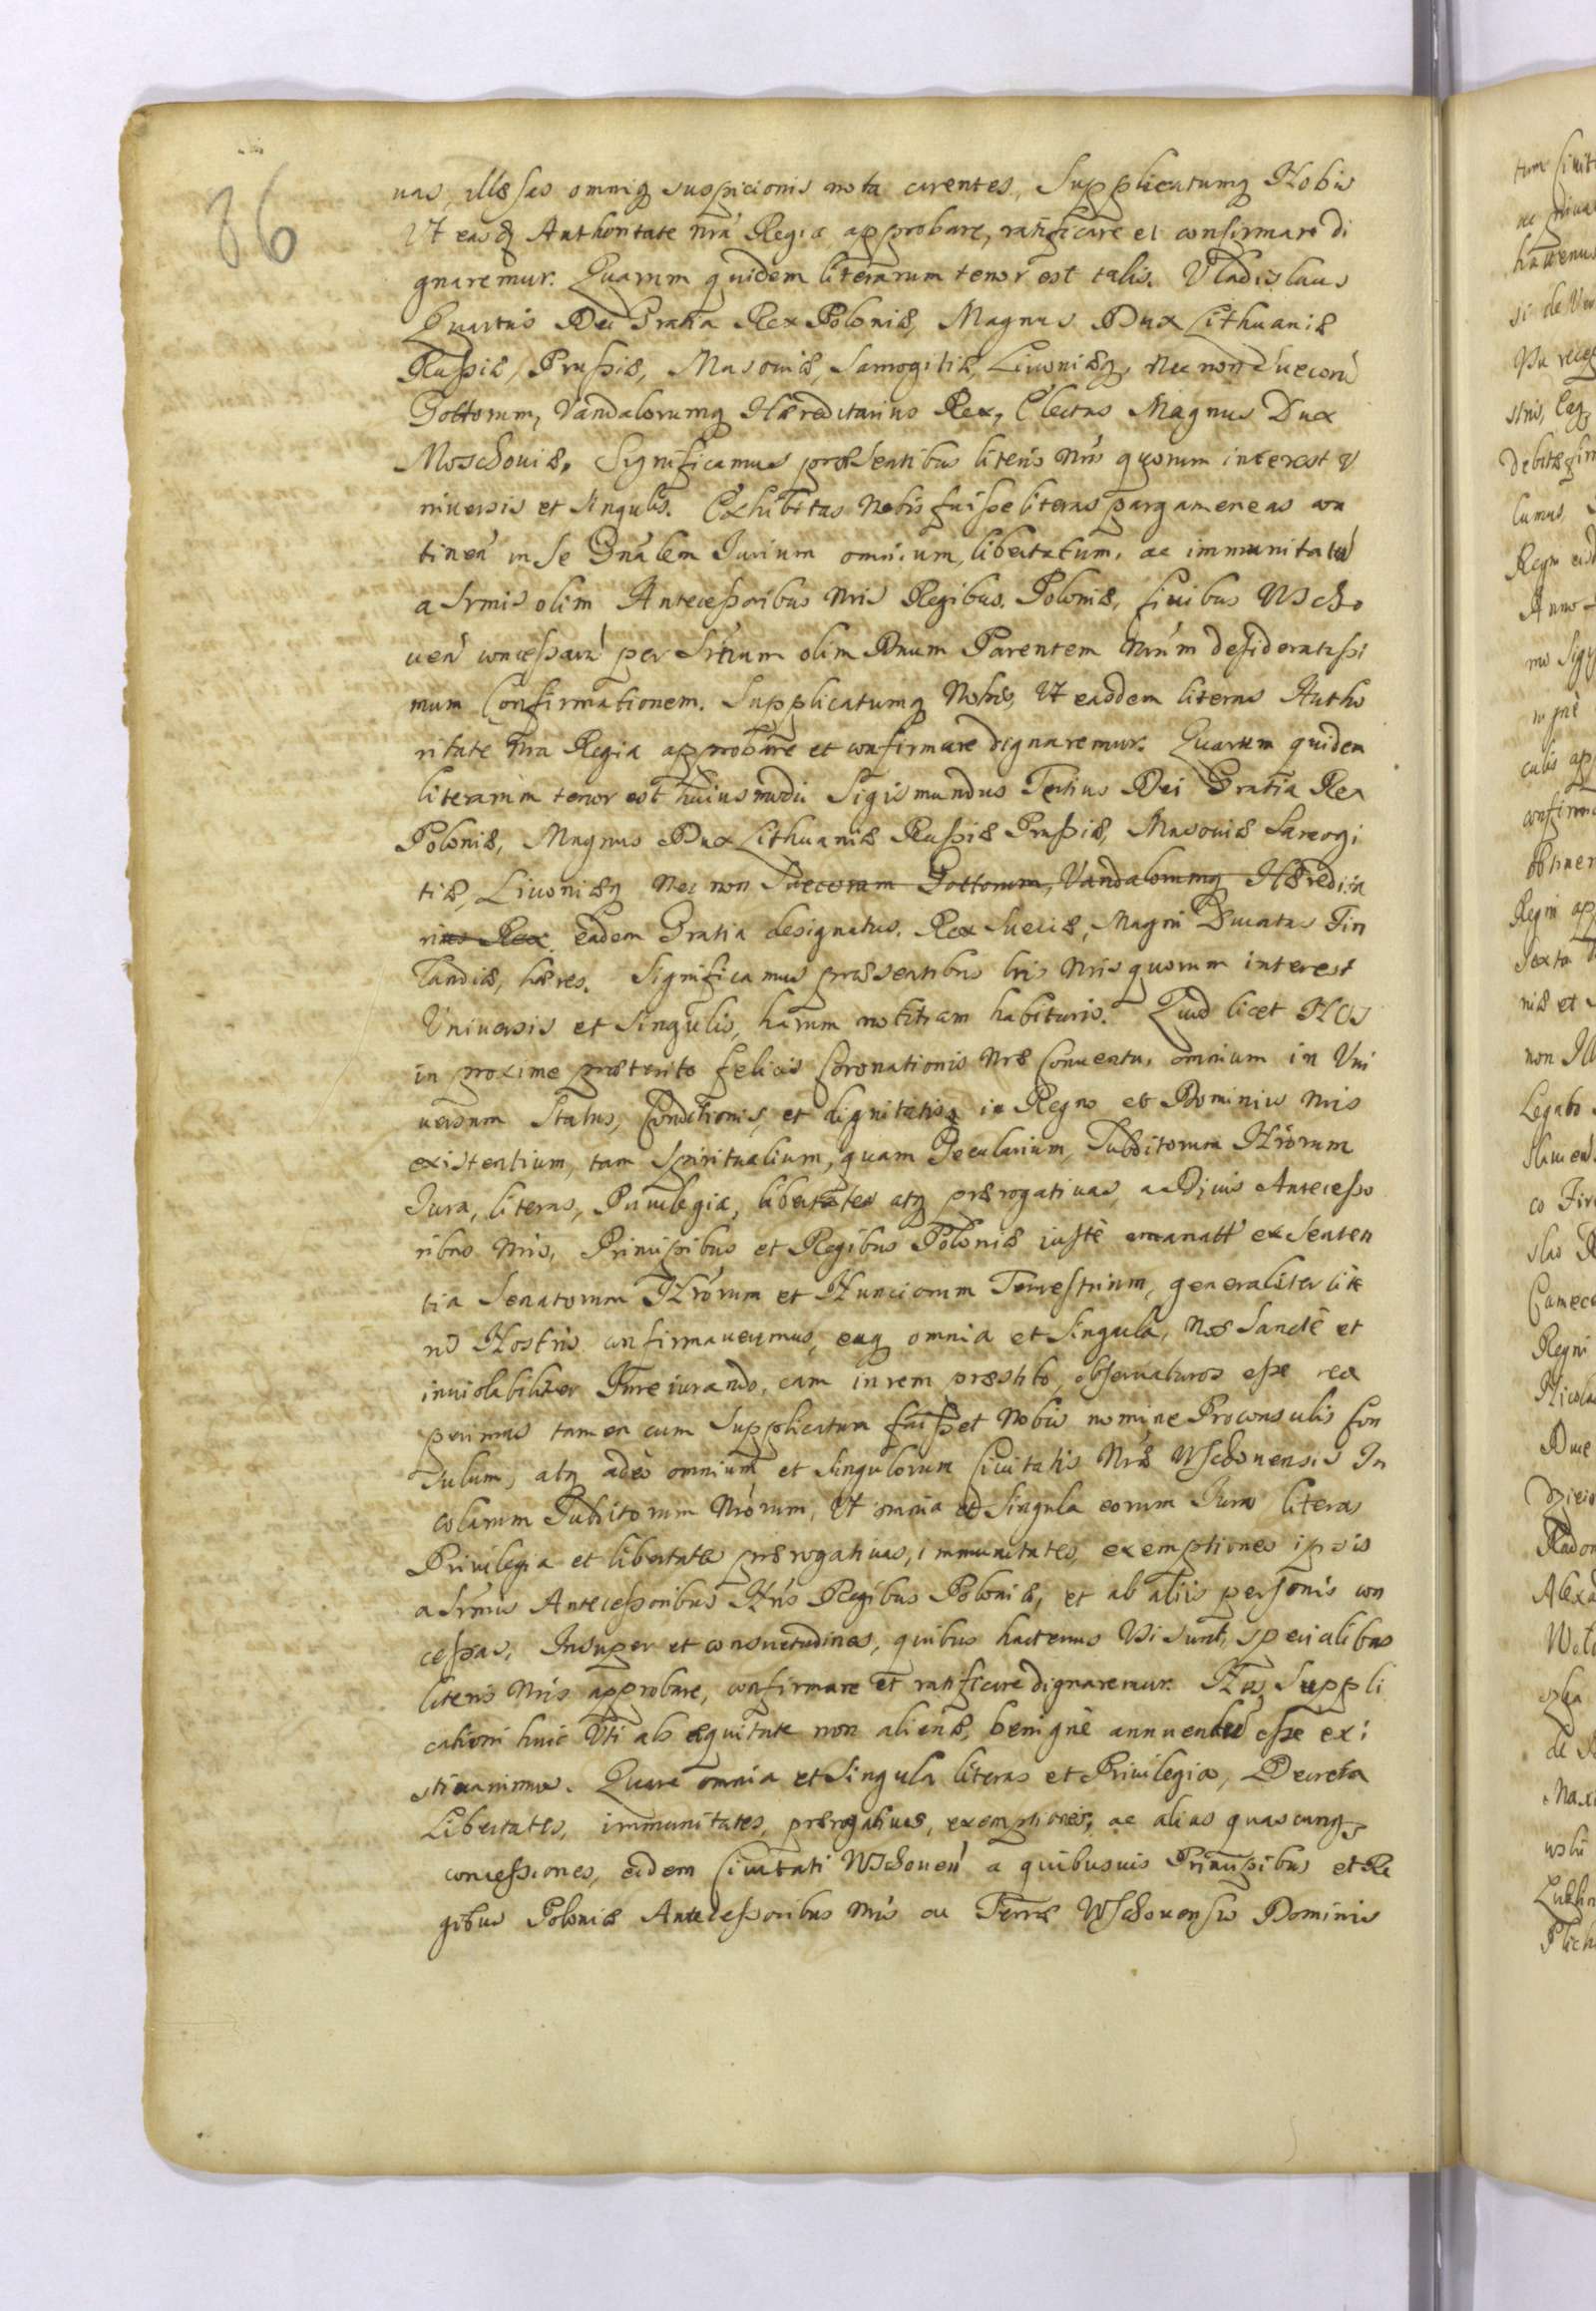 36
uas, illæsas omniq suspicionis nota carentes, Supplicatumq Nobis
Vt easdē Authoritate nrã Regia approbare, ratificare et confirmare di
gnaremur. Quarum quidem literarum tenor est talis. Vladislaus
Quartus Dei Gratia Rex Poloniæ, Magnus Dux Lithuaniæ
Rußiæ, Prußiæ, Masouiæ, Samogitiæ, Liuoniæq, Nec non Suecorũ
Gottorum, Vandalorumq Hæreditarius Rex, Electus Magnus Dux
Moschouiæ. Significamus præsentibus literis Nrĩs quorum interest V
niuersis et singulis. Exhibitas Nobis fuiße literas pargameneas con
tineñ in se Gnãlem Iurium omnium, libertatum, ac immunitatũ
a Srmis olim Anteceßoribus Nris Regibus Poloniæ, Ciuibus Wscho
ueñ conceßarũ per Srmum olim Dnum Parentem Nrũm desideratißi
mum Confirmationem. Supplicatumq Nobis, Vt easdem literas Autho
ritate Nra Regia approbare et confirmare dignaremur. Quarum quidem
literarum tenor est huiusmodi Sigismundus Tertius Dei Gratia Rex
Poloniæ, Magnus Dux Lithuaniæ Rußiæ Prußiæ, Masouiæ Samogi
tiæ, Liuoniæq Nec non Suecorum Gottorum, Vandalorumq Hæredita
rius Rex, eadem Gratia designatus Rex Sueciæ, Magni Ducatus Fin
landiæ, hæres. Significamus præsentibus lris Nris quorum interest
Vniuersis et singulis, harum notitiam habituris. Quod licet Nos
in proxime præterito felicis Coronationis Nræ Conuentu, omnium in Vni
uersum Status, Conditionis, et dignitatis, in Regno et Dominiis Nris
existentium, tam Spiritualium, quam Secularium, Subditorum Nrorum
Iura, literas, Priuilegia, libertates atq prærogatiuas, a Diuis Anteceßo
ribus Nris, Principibus et Regibus Poloniæ iustè emanatt ex Senten
tia Senatorum Nrorum et Nunciorum Terrestrium, generaliter lite
ris Nostris confirmauerimus, eaq omnia et singula, Nos Sanctè et
inuiolabiliter Iureiurando, eam in rem præstito, obseruaturos eße rece
perimus tamen cum Supplicatum fuißet Nobis nomine Proconsulis Con
sulum, atq adeò omnium et singulorum Ciuitatis Nræ Wschouensis In
colarum Subditorum Nrorum, Vt omnia et singula eorum Iura literas
Priuilegia et libertates prærogatiuas, immunitates, exemptiones ipsis
a Srmis Anteceßoribus Nris Regibus Poloniæ, et ab aliis personis con
ceßas, Insuper et consuetudines, quibus hactenus Vsi sunt, specialibus
literis Nris approbare, confirmare et ratificare dignaremur. Nos Suppli
cationi huic Vti ab æquitate non alienæ, benignè annuendũ eße exi
stimauimus. Quare omnia et singula literas et Priuilegia, Decreta
Libertates, immunitates, prærogatiuas, exemptiones, ac alias quascunq
conceßiones, eidem Ciuitati Wschoueñ a quibusuis Principibus et Re
gibus Poloniæ Anteceßoribus Nris ac Terræ Wschouensis Dominis